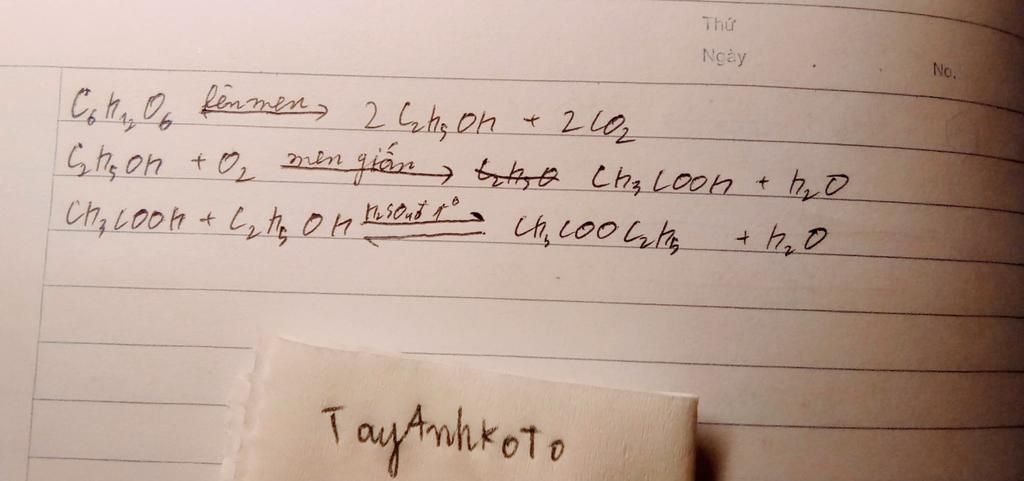 Thứ
Ngày
No.
C₆H₁₂O₆ lên men → 2C₂H₅OH + 2CO₂
C₂H₅OH + O₂ men giấm → C₂H₅O CH₃COOH + H₂O
CH₃COOH + C₂H₅OH H₂SO₄đ t° ⇌ CH₃COOC₂H₅ + H₂O
TayAnhkoTo